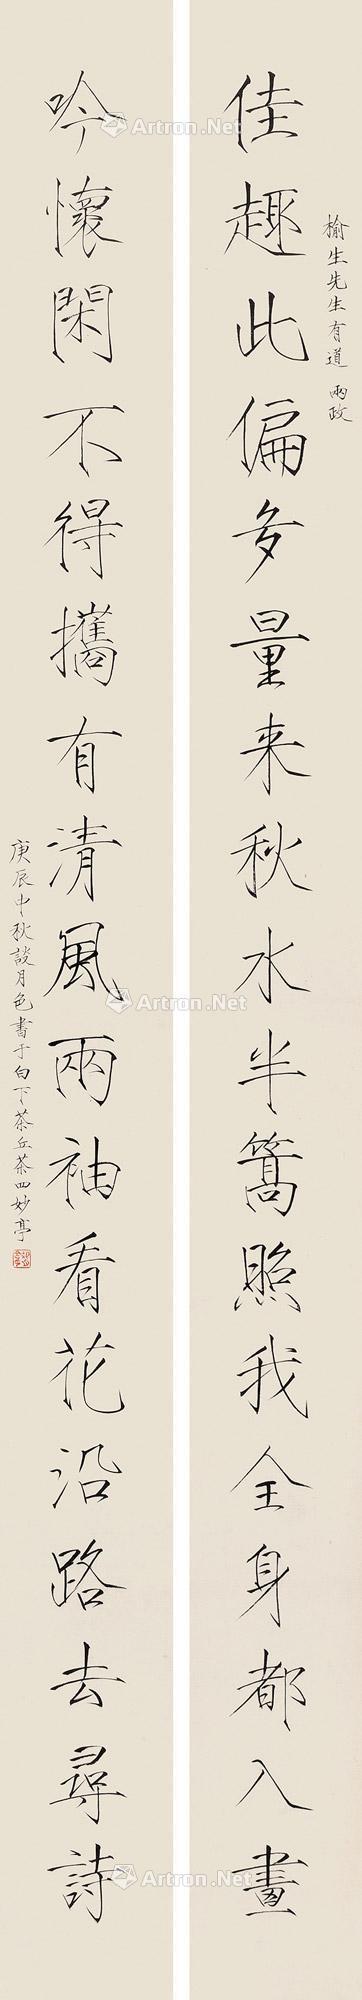 榆生先生有道 兩政
佳趣此偏多量来秋水半篙照我全身都入畫
吟懷閑不得攜有清風兩袖看花沿路去尋詩
庚辰中秋談月色書于白下茶丘茶四妙亭
Artron.Net
Artron.Net
Artron.Net
Artron.Net
Artron.Net
Artron.Net